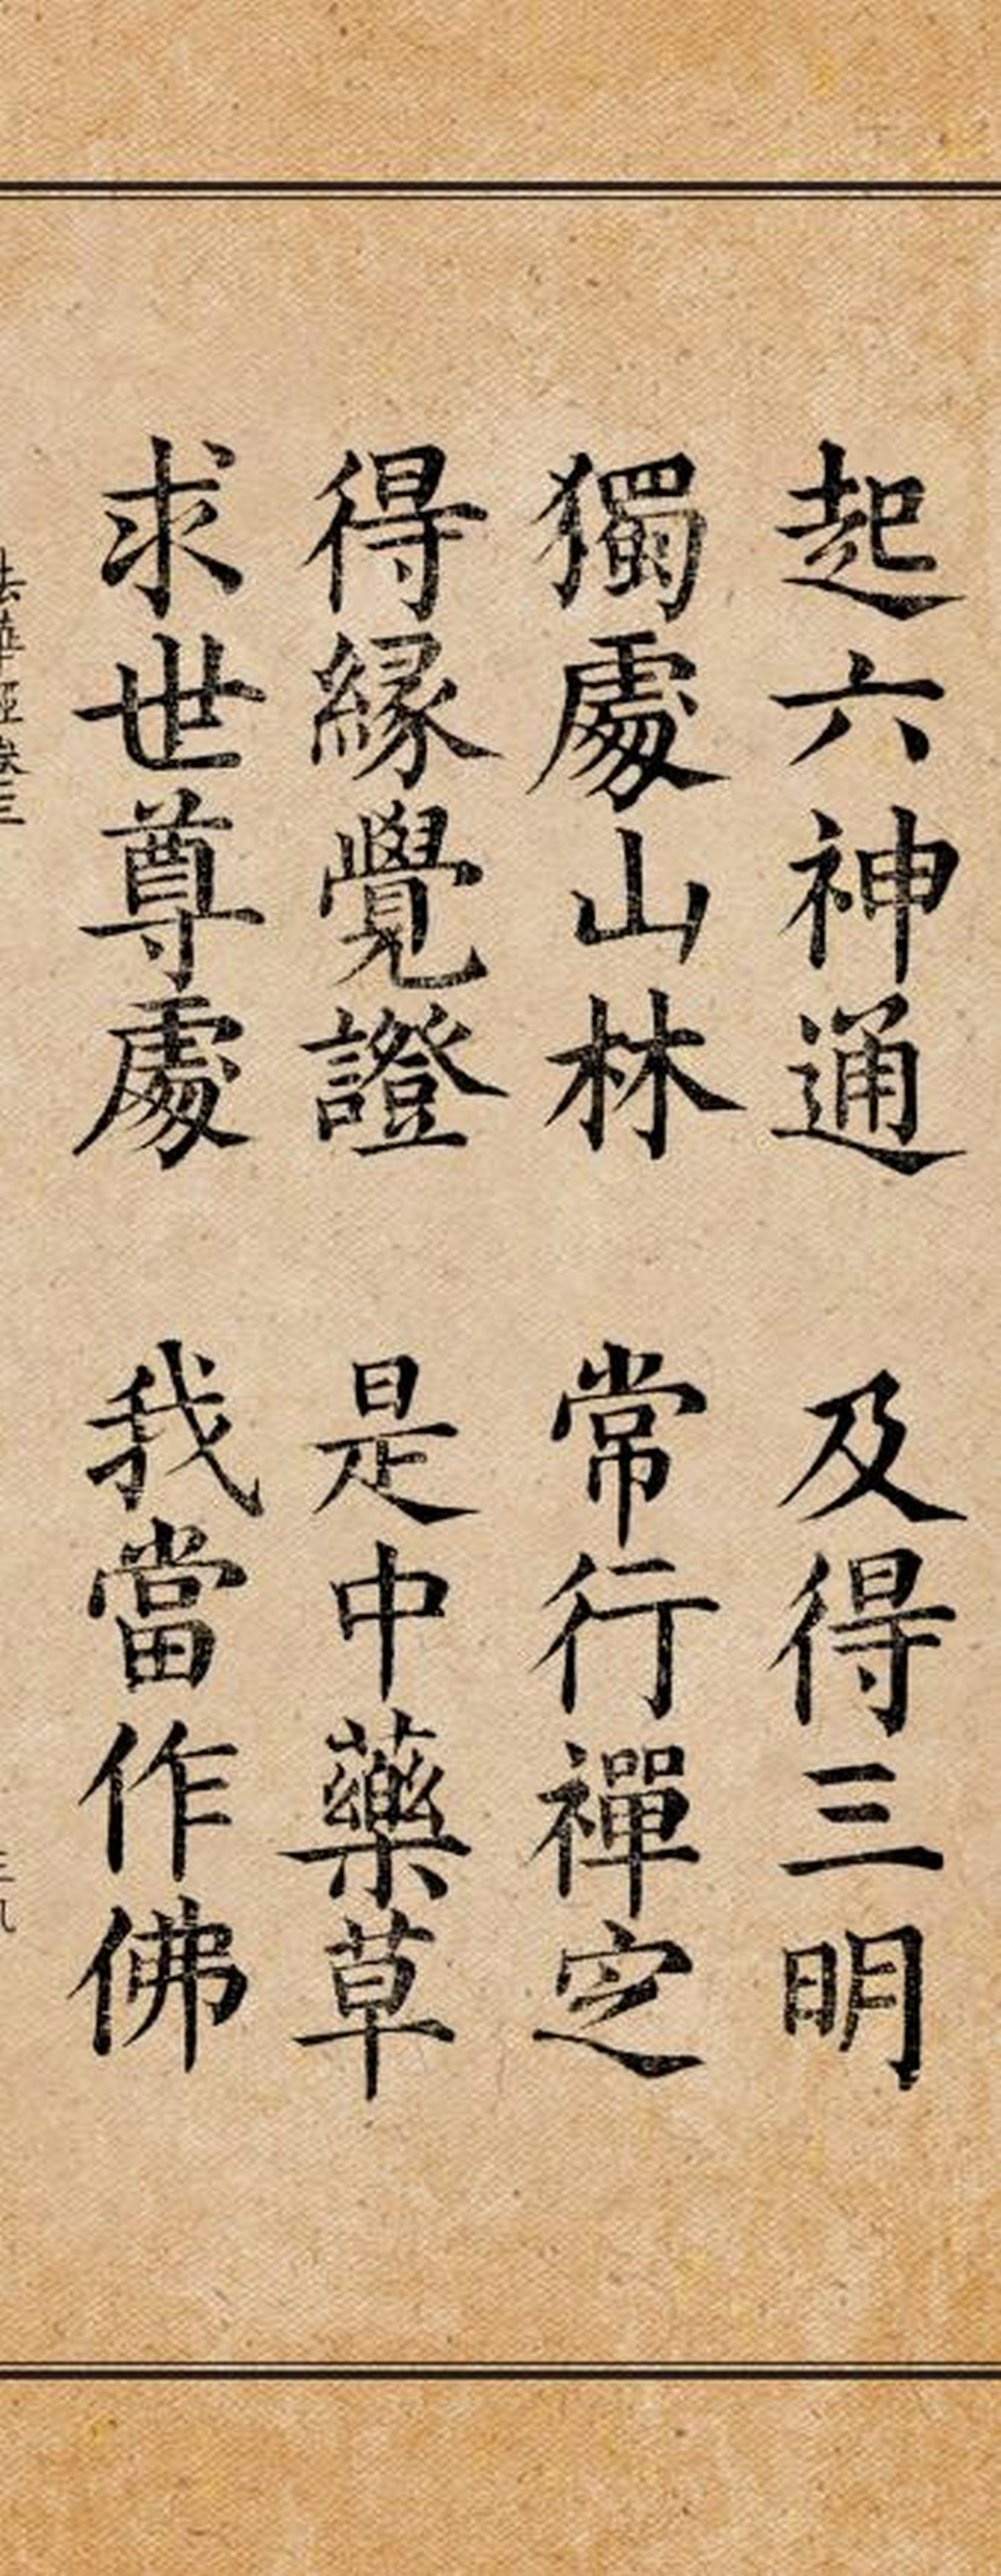 起六神通 及得三明
獨處山林 常行禪定
得緣覺證 是中藥草
求世尊處 我當作佛
法華經卷三